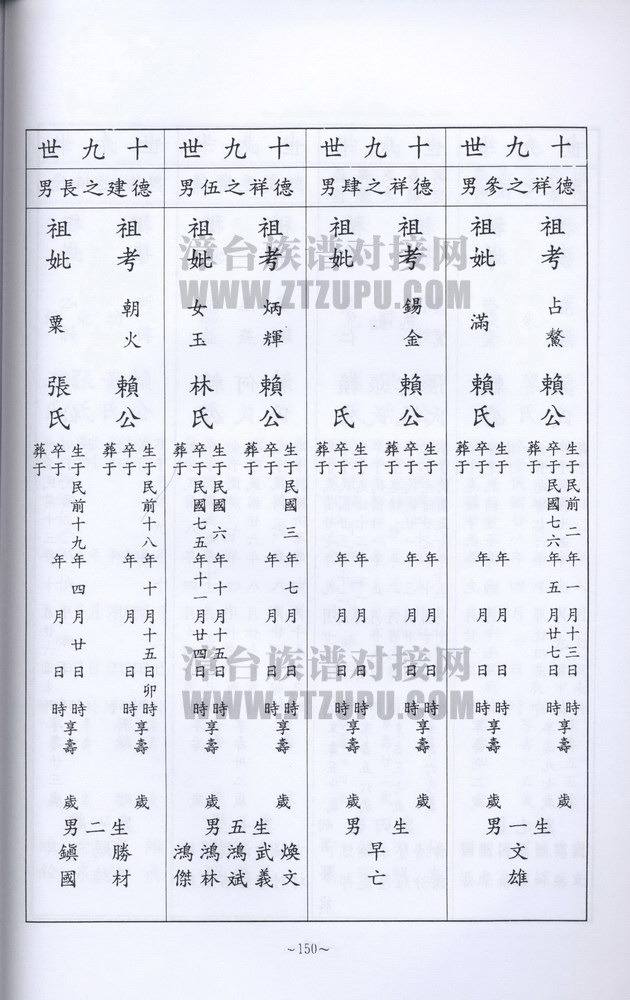 十九世
德祥之參男
祖考 占鰲 賴公
生于民前二年一月十三日時
卒于民國七六年五月廿七日時享壽 歲
葬于
祖妣 滿 賴氏
生于 年 月 日 時
卒于 年 月 日 時享壽 歲
葬于
生一男
文雄
十九世
德祥之肆男
祖考 錫金 賴公
生于 年 月 日 時
卒于 年 月 日 時享壽 歲
葬于
祖妣 氏
生于 年 月 日 時
卒于 年 月 日 時享壽 歲
葬于
生 男
早亡
十九世
德祥之伍男
祖考 炳輝 賴公
生于民國三年七月 日 時
卒于 年 月 日 時享壽 歲
葬于
祖妣 女玉 林氏
生于民國六年十月十五日時
卒于民國七五年十一月廿四日時享壽 歲
葬于
生五男
煥文
武義
鴻斌
鴻林
鴻傑
十九世
德建之長男
祖考 朝火 賴公
生于民前十八年十月十五日卯時
卒于 年 月 日 時享壽 歲
葬于
祖妣 粟 張氏
生于民前十九年四月廿日時
卒于 年 月 日 時享壽 歲
葬于
生二男
勝材
鎮國
~150~
漳台族谱对接网
WWW.ZTZUPU.COM
漳台族谱对接网
WWW.ZTZUPU.COM